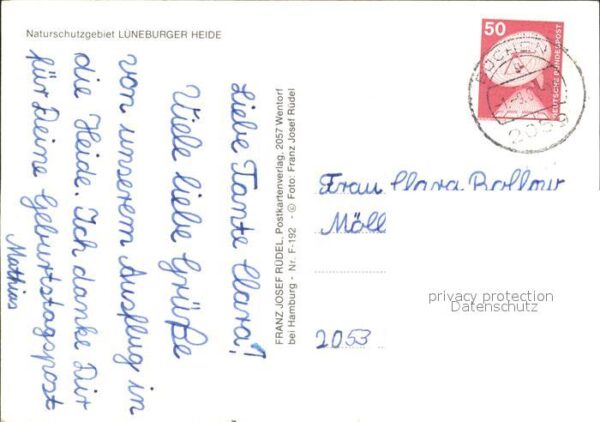 Naturschutzgebiet LÜNEBURGER HEIDE
Liebe Tante Clara!
Viele liebe Grüße
von unserem Ausflug in
die Heide. Ich danke Dir
für Deine Geburtstagspost
Mathias
FRANZ JOSEF RÜDEL, Postkartenverlag, 2057 Wentorf
bei Hamburg - Nr. F-192 - © Foto: Franz Josef Rüdel
50
DEUTSCHE BUNDESPOST
BÜCHEN
2059
Frau Clara
Möll
2053
privacy protection
Datenschutz